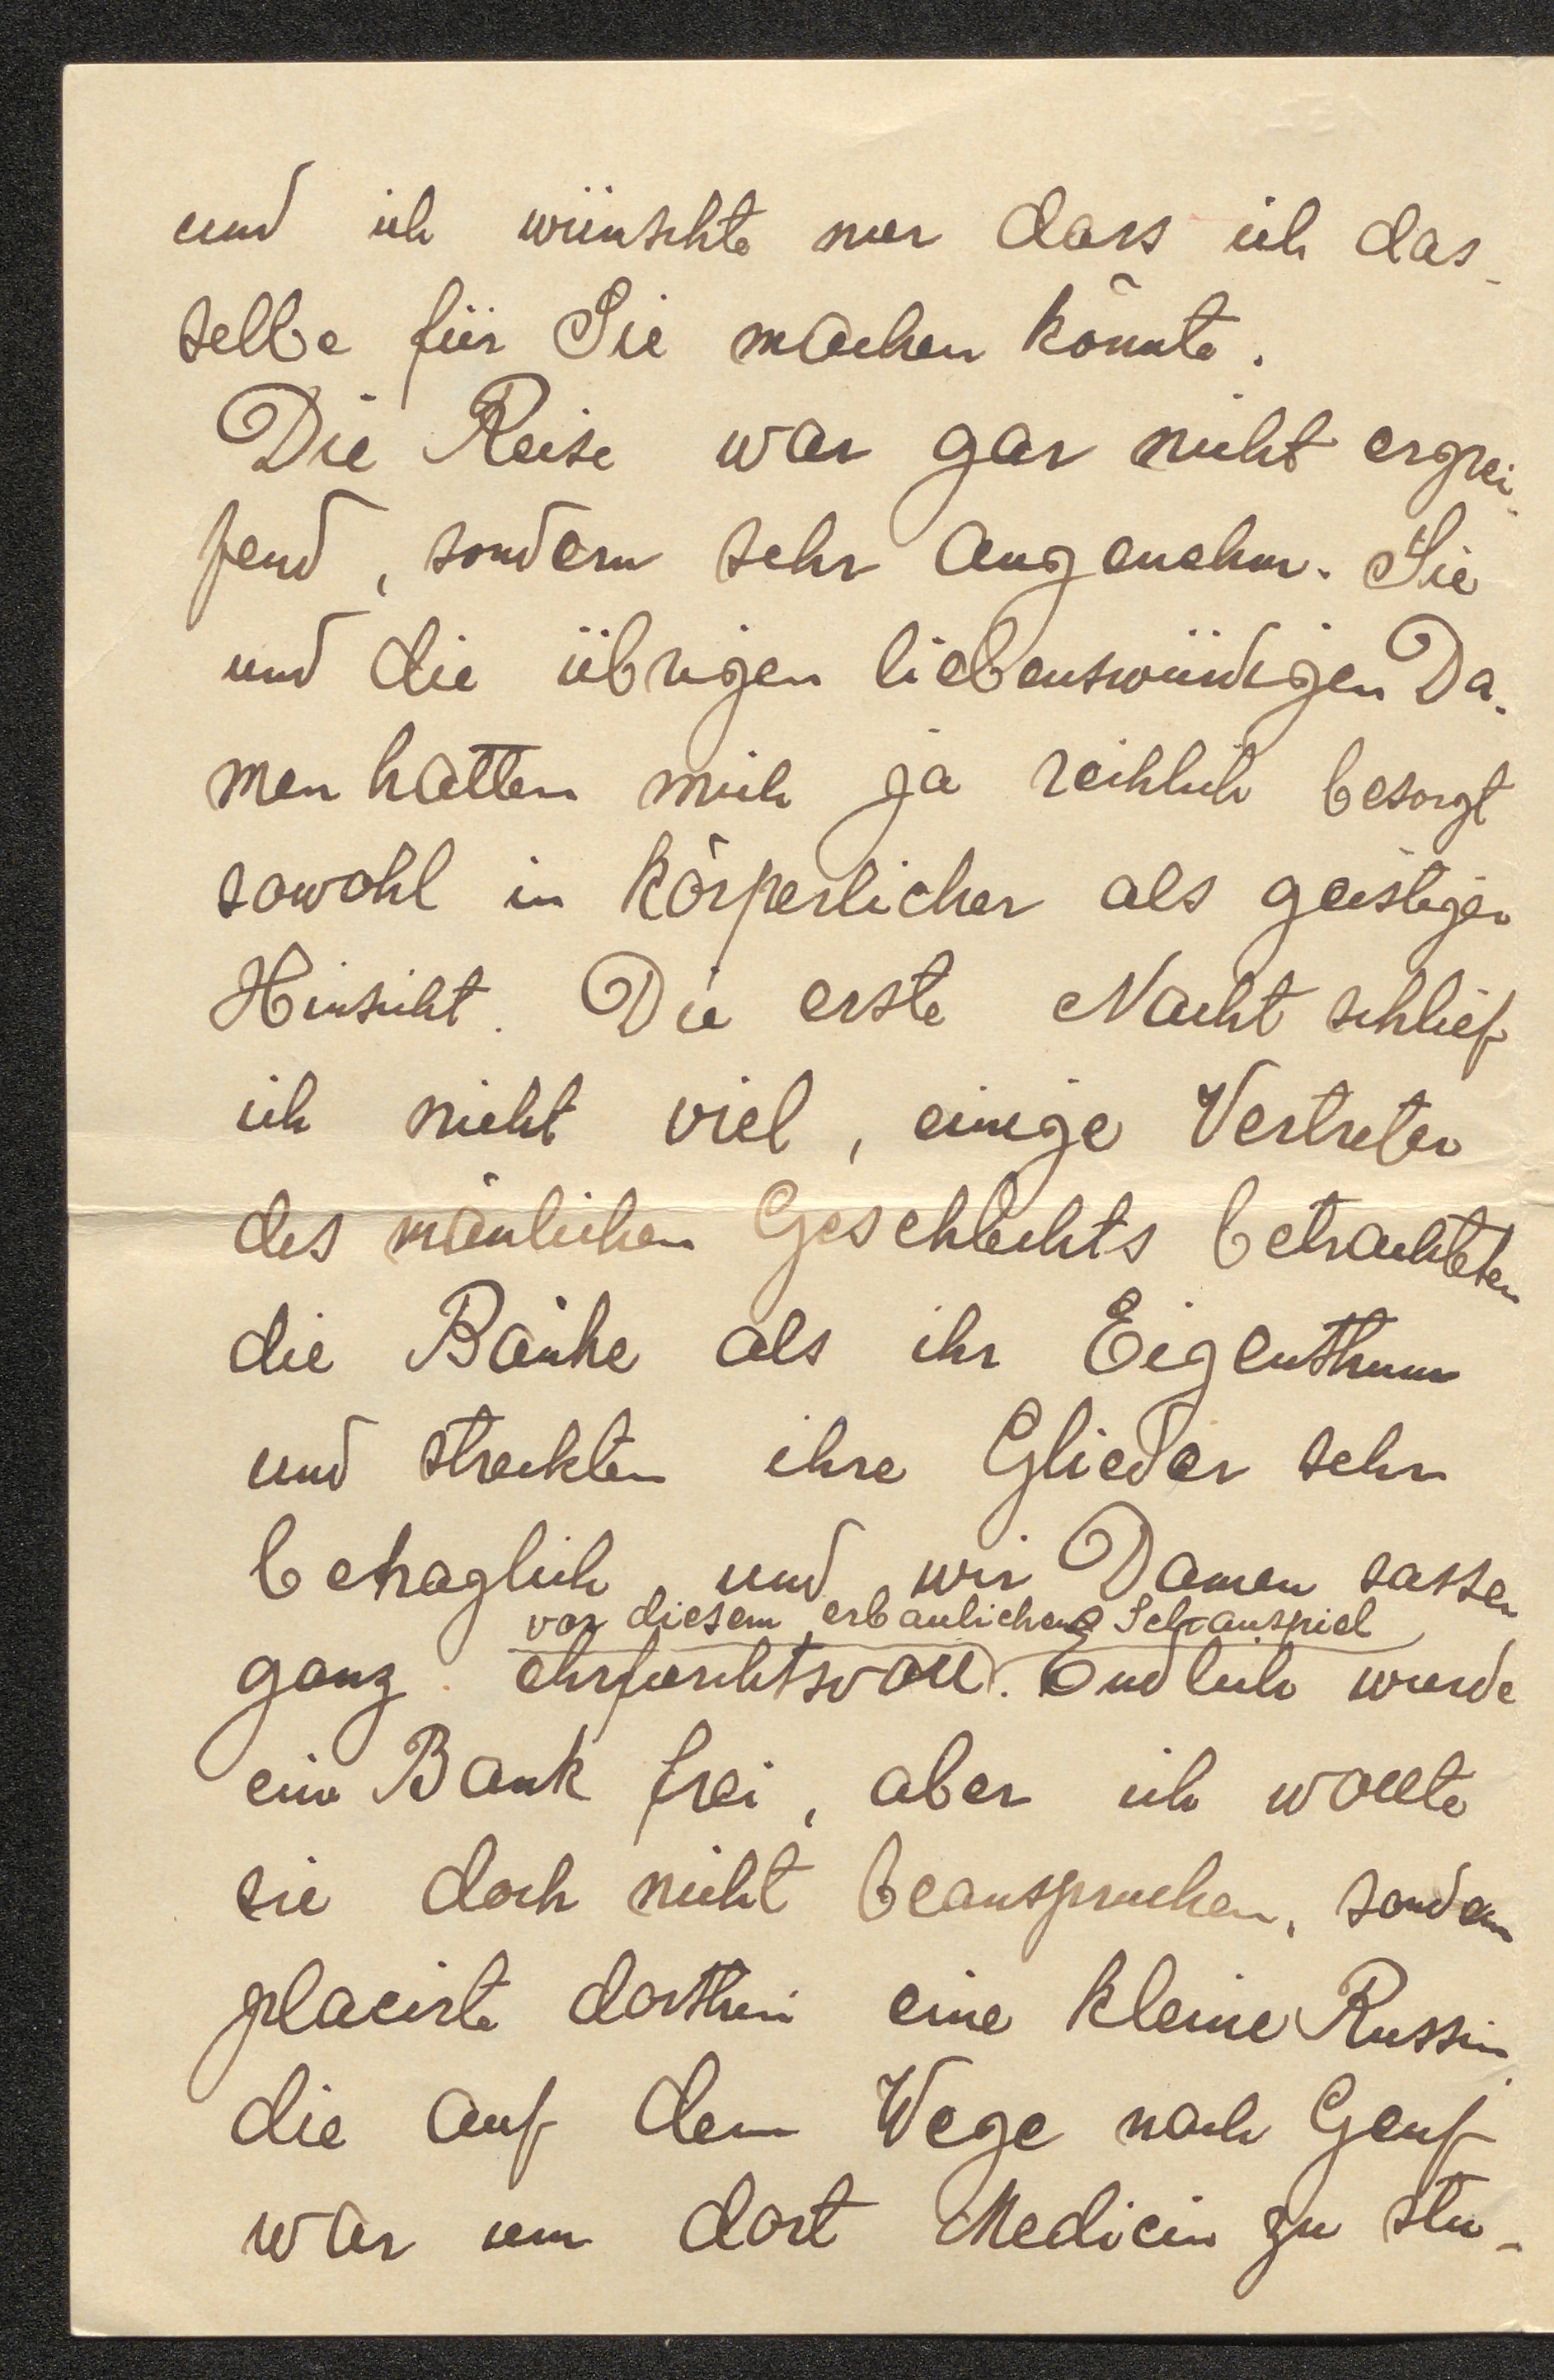 und ich wünschte nur dass ich das-
selbe für Sie machen könnte.
Die Reise war gar nicht ergrei-
fend, sondern sehr angenehm. Sie
und die übrigen liebenswürdigen Da-
men hatten mich ja reichlich besorgt
sowohl in körperlicher als geistiger
Hinsicht. Die erste Nacht schlief
ich nicht viel, einige Vertreter
des mänlichen Geschlechts betrachteten
die Bänke als ihr Eigenthum
und streckten ihre Glieder sehr
behaglich, und wir Damen sassen
vor diesem erbaulichen Schauspiel
ganz ehrfurchtsvoll. Endlich wurde
eine Bank frei, aber ich wollte
sie doch nicht beanspruchen, sondern
placirte dorthin eine kleine Russin,
die auf dem Wege nach Genf
war um dort Medicin zu stu-